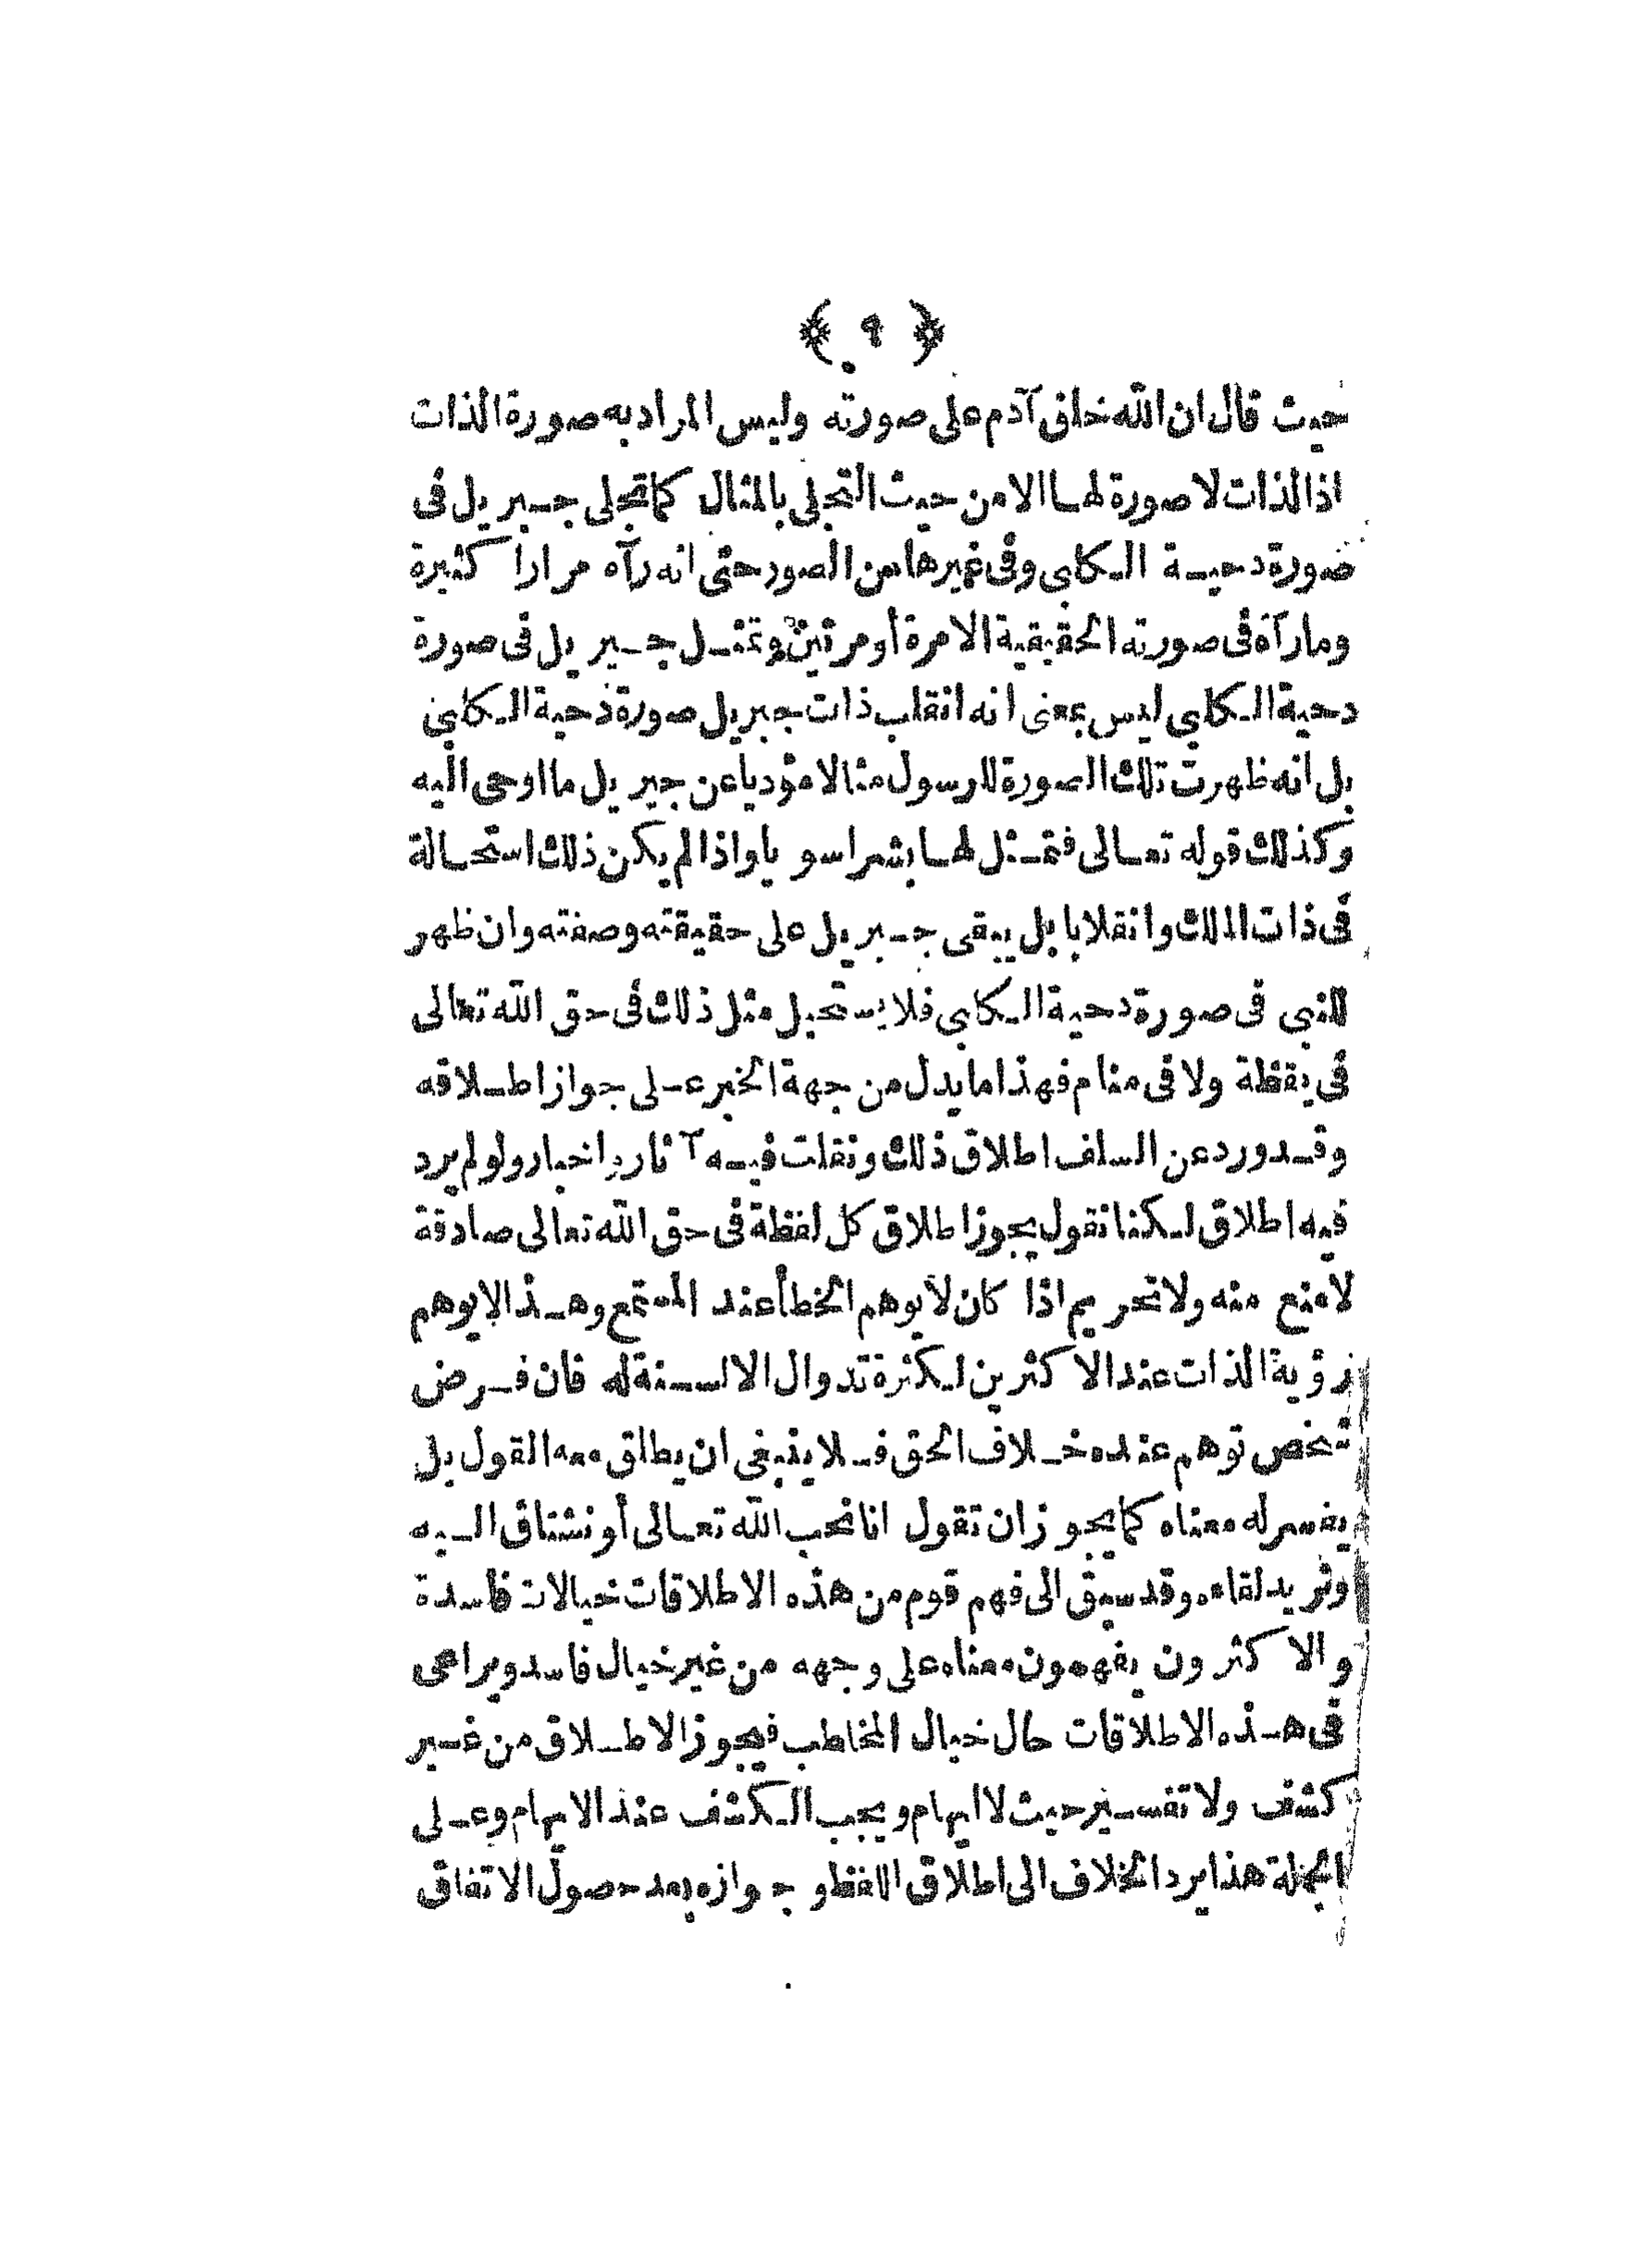 ﴿ ٩ ﴾
حيث قال ان الله خلق آدم على صورته وليس المراد به صورة الذات
اذ الذات لا صورة لها الا من حيث التجلى بالمثال كما تجلى جبريل فى
صورة دحية الكلبى وفى غيرها من الصور حتى انه رآه مرارا كثيرة
وما رآه فى صورته الحقيقية الا مرة أو مرتين وتمثل جبريل فى صورة
دحية الكلبى ليس بمعنى انه انقلب ذات جبريل صورة دحية الكلبى
بل انه ظهرت تلك الصورة للرسول مثالا مؤديا عن جبريل ما اوحى اليه
وكذلك قوله تعالى فتمثل لها بشرا سويا واذا لم يكن ذلك استحالة
فى ذات الملك وانقلابا بل يبقى جبريل على حقيقته وصفته وان ظهر
للنبى فى صورة دحية الكلبى فلا يستحيل مثل ذلك فى حق الله تعالى
فى يقظة ولا فى منام فهذا ما يدل من جهة الخبر على جواز اطلاقه
وقد ورد عن السلف اطلاق ذلك ونقلت فيه آثار واخبار ولو لم يرد
فيه اطلاق لكنا نقول يجوز اطلاق كل لفظة فى حق الله تعالى صادقة
لا منع منه ولا تحريم اذا كان لا يوهم الخطأ عند المستمع وهذا لا يوهم
رؤية الذات عند الاكثرين لكثرة تدوال الالسنة له فان فرض
شخص توهم عنده خلاف الحق فلا ينبغى ان يطلق معه القول بل
يفسر له معناه كما يجوز ان تقول انا نحب الله تعالى أو نشتاق اليه
ونريد لقاءه وقد سبق الى فهم قوم من هذه الاطلاقات خيالات فاسدة
والاكثرون يفهمون معناه على وجهه من غير خيال فاسد ويراعى
فى هذه الاطلاقات حال خيال المخاطب فيجوز الاطلاق من غير
كشف ولا تفسير حيث لا ايهام ويجب الكشف عند الايهام وعلى
الجملة هذا يرد الخلاف الى اطلاق اللفظ وجوازه بعد حصول الاتفاق